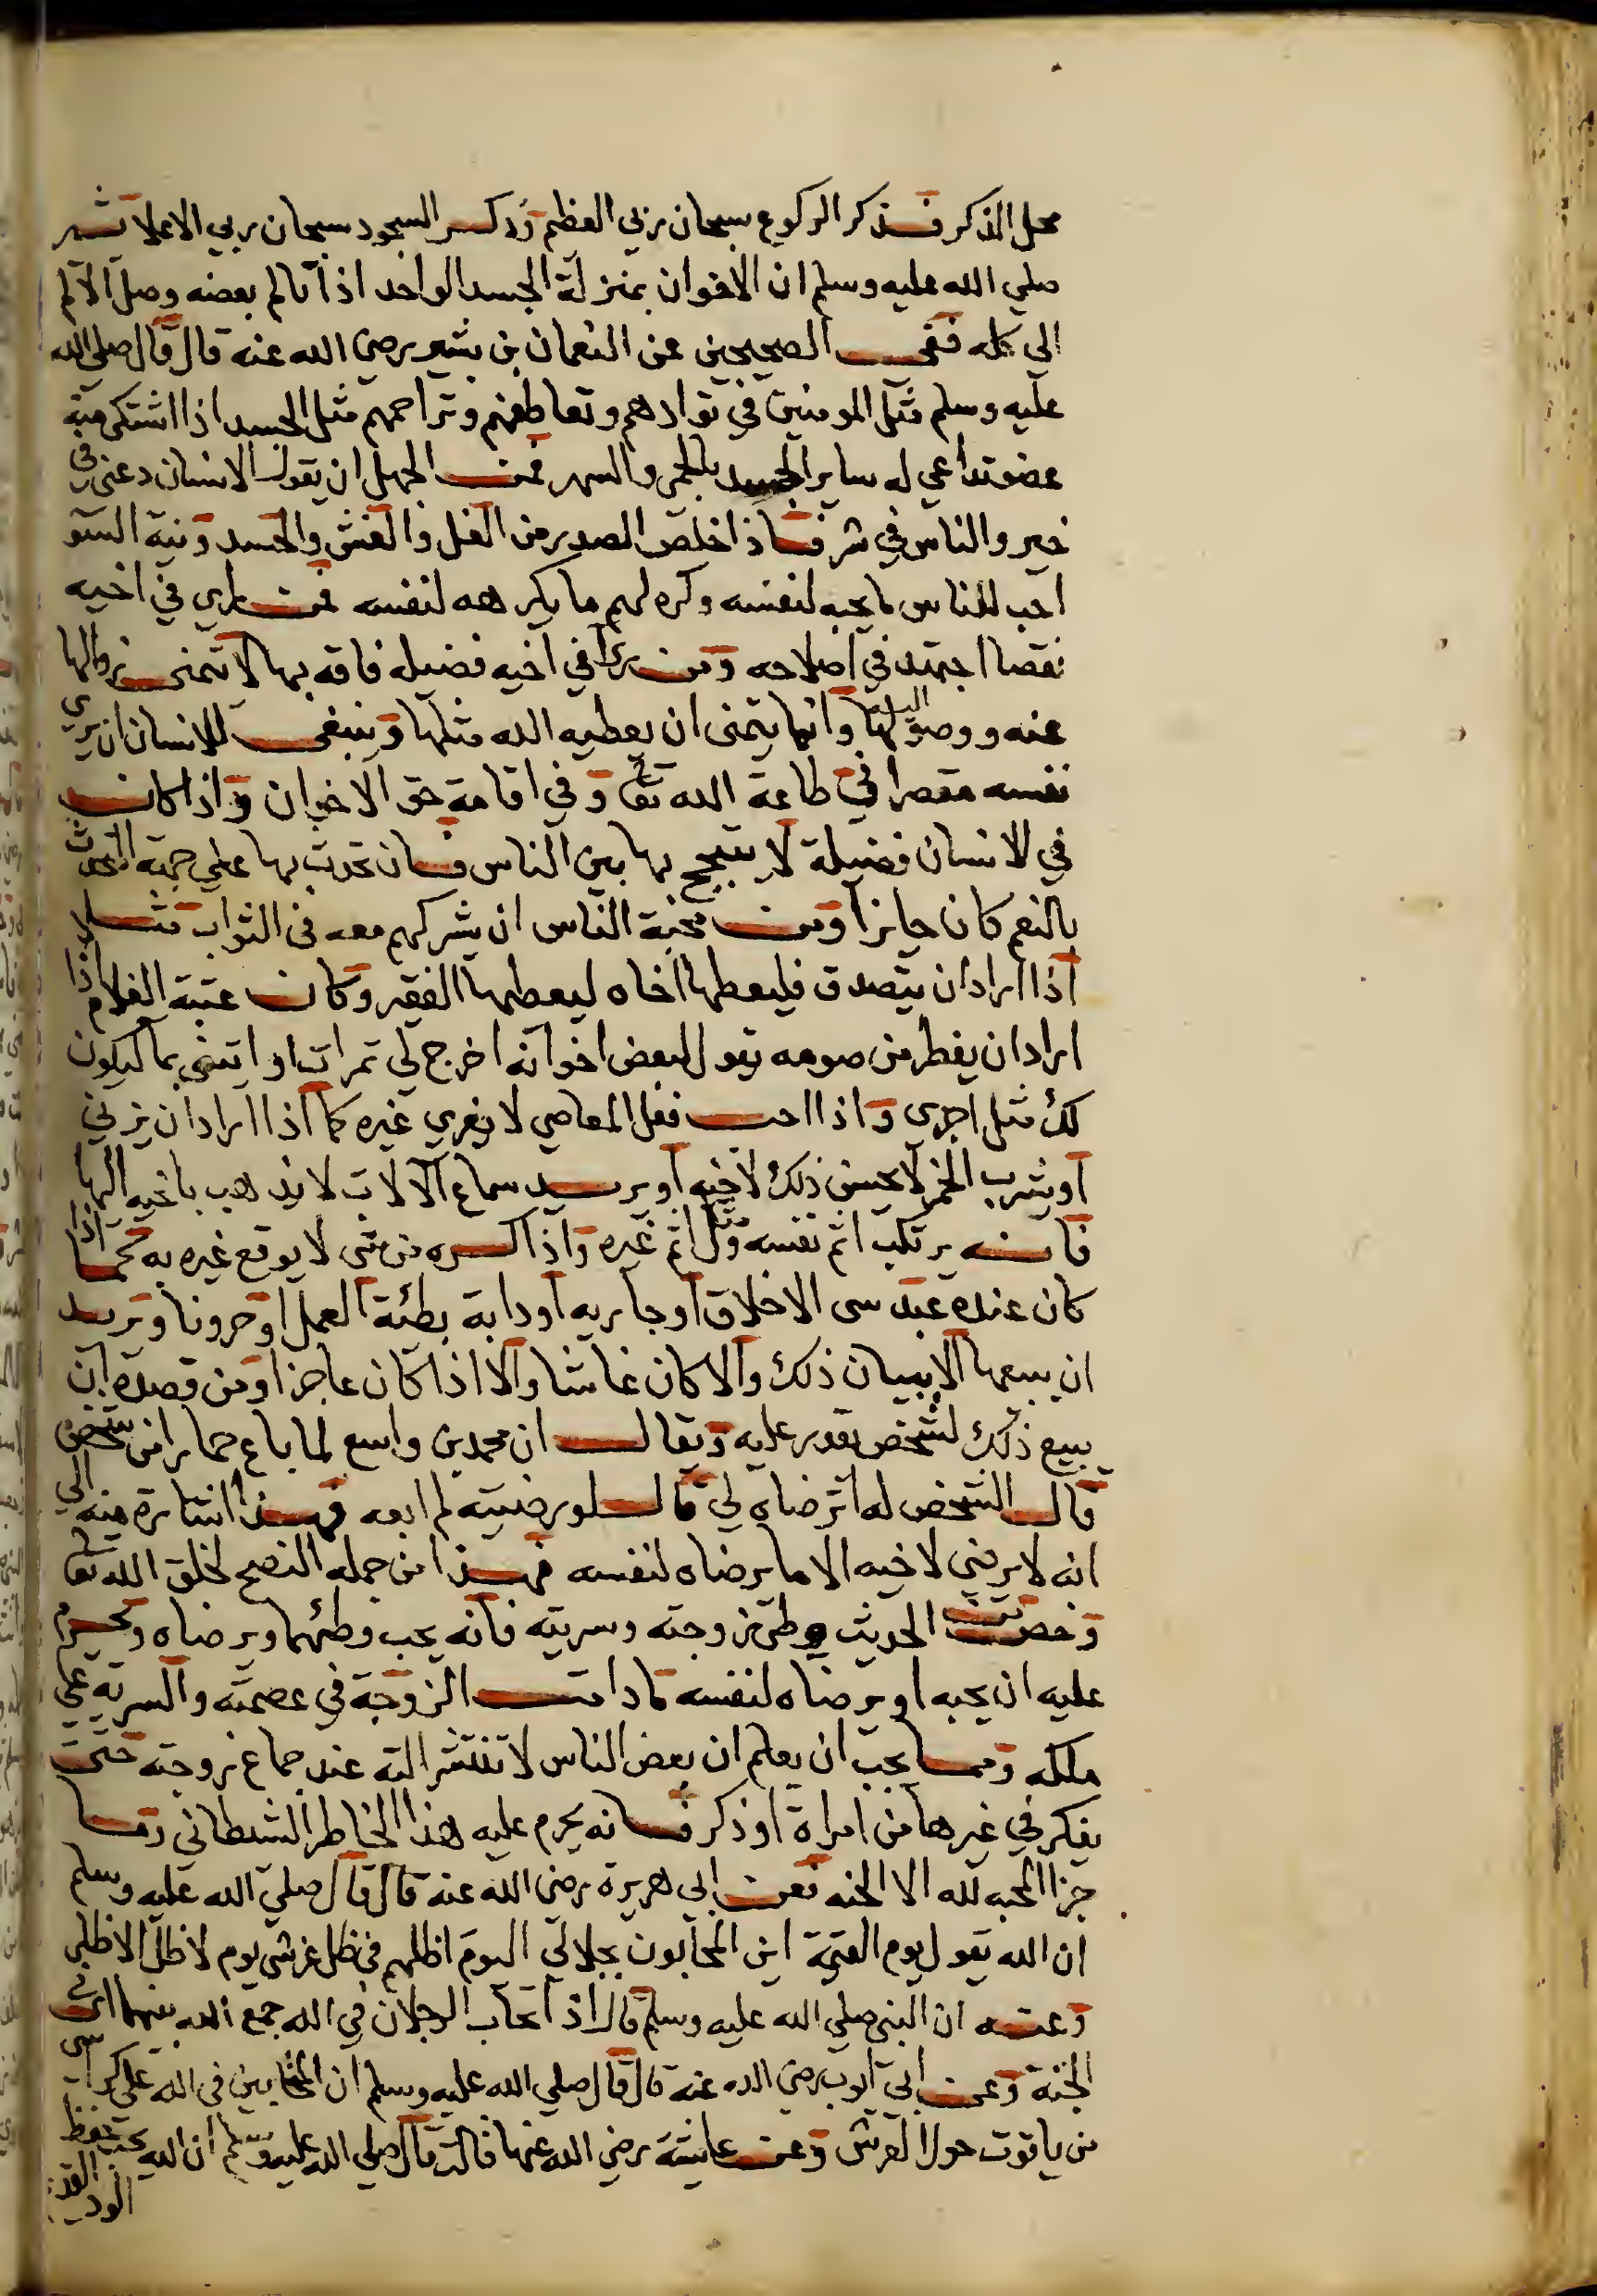 محل الذكر فذكر الركوع سبحان ربي العظيم وذكر السجود سبحان ربي الاعلا ثم
صلي الله عليه وسلم ان الاخوان بمنزلة الجسد الواحد اذا تالم بعضه وصل الالم
الي كله ففي الصحيحين عن النعمان بن بشير رضي الله عنه قال قال صلي الله
عليه وسلم مثل المومنين في توادهم وتعاطفهم وتراحمهم مثل الجسد اذا اشتكي منه
عضو تداعي له ساير الجسد بالحمى والسهر فمن الجهل ان يقول الانسان دعني في
خير والناس في شر فاذا خلص الصدر من الغل والغش والحسد ونية السو
احب للناس ما يحبه لنفسه وكره لهم ما يكرهه لنفسه فمن راي في اخيه
نقصا اجتهد في اصلاحه ومن راا في اخيه فضيله فاقه بها لا يتمنى زوالها
عنه ووصولها اليه وانما يتمنى ان يعطيه الله مثلها وينبغي للانسان ان يري
نفسه مقصرا في طاعة الله تعا وفي اقامة حق الاخوان واذا كانت
في الانسان فضيلة لا يتبجح بها بين الناس فان تحدث بها علي جهة التحدث
بالنعم كان جايزا ومن محبة الناس ان يشركهم معه في الثواب مثلا
اذا اراد ان يتصدق فليعطها اخاه ليعطيها الفقير وكان عتبة الغلام اذا
اراد ان يفطر من صومه يقول لبعض اخوانه اخرج لي تمرات او ايتني بما ليكون
لك مثل اجري واذا احب فعل المعاصي لا يغري غيره كما اذا اراد ان يزني
او يشرب الخمر لا يحسن ذلك لاخيه او يريد سماع الالات لا يذهب باخيه اليها
فانه يرتكب اثم نفسه ومثل اثم غيره واذا كره من شي لا يوقع غيره به كما اذا
كان عنده عبد سي الاخلاق او جاريه او دابة بطئة العمل او حرونا وتريد
ان يبيعها الا ببيان ذلك والا كان غاشا والا اذا كان عاجزا ومن قصده ان
يبيع ذلك لشخص يقدر عليه ويقال ان محمد بن واسع لما باع حمارا من شخص
قال الشخص له اترضاه لي قال لو رضيته لم ابعه فهذا اشارة منه الي
انه لا يرضي لاخيه الا ما يرضاه لنفسه فهذا من جمله النصح لخلق الله تعا
وخصوص الحديث وطي زوجته وسريته فانه يحب وطئهما ويرضاه ويحرم
عليه ان يحبه او يرضاه لنفسه مادامت الزوجة في عصمته والسرية علي
ملكه ومما يجب ان يعلم ان بعض الناس لا تنتشر الته عند جماع زوجته حتى
يفكر في غيرها من امراة او ذكر فانه يحرم عليه هذا الخاطر الشيطاني وما
جزا المحبه لله الا الجنه فعن ابي هريرة رضي الله عنه قال قال صلي الله عليه وسلم
ان الله يقول يوم القيمة اين المتحابون بجلالي اليوم اظلهم في ظل عرشي يوم لا ظل الا ظلي
وعنه ان النبي صلي الله عليه وسلم قال اذا تحاب الرجلان في الله جمع الله بينهما في
الجنة وعن ابي ايوب رضي الله عنه قال قال صلي الله عليه وسلم ان المتحابين في الله علي كراسي
من ياقوت حول العرش وعن عايشة رضي الله عنها قالت قال صلي الله عليه وسلم ان الله يحب حفظ
الود القديم